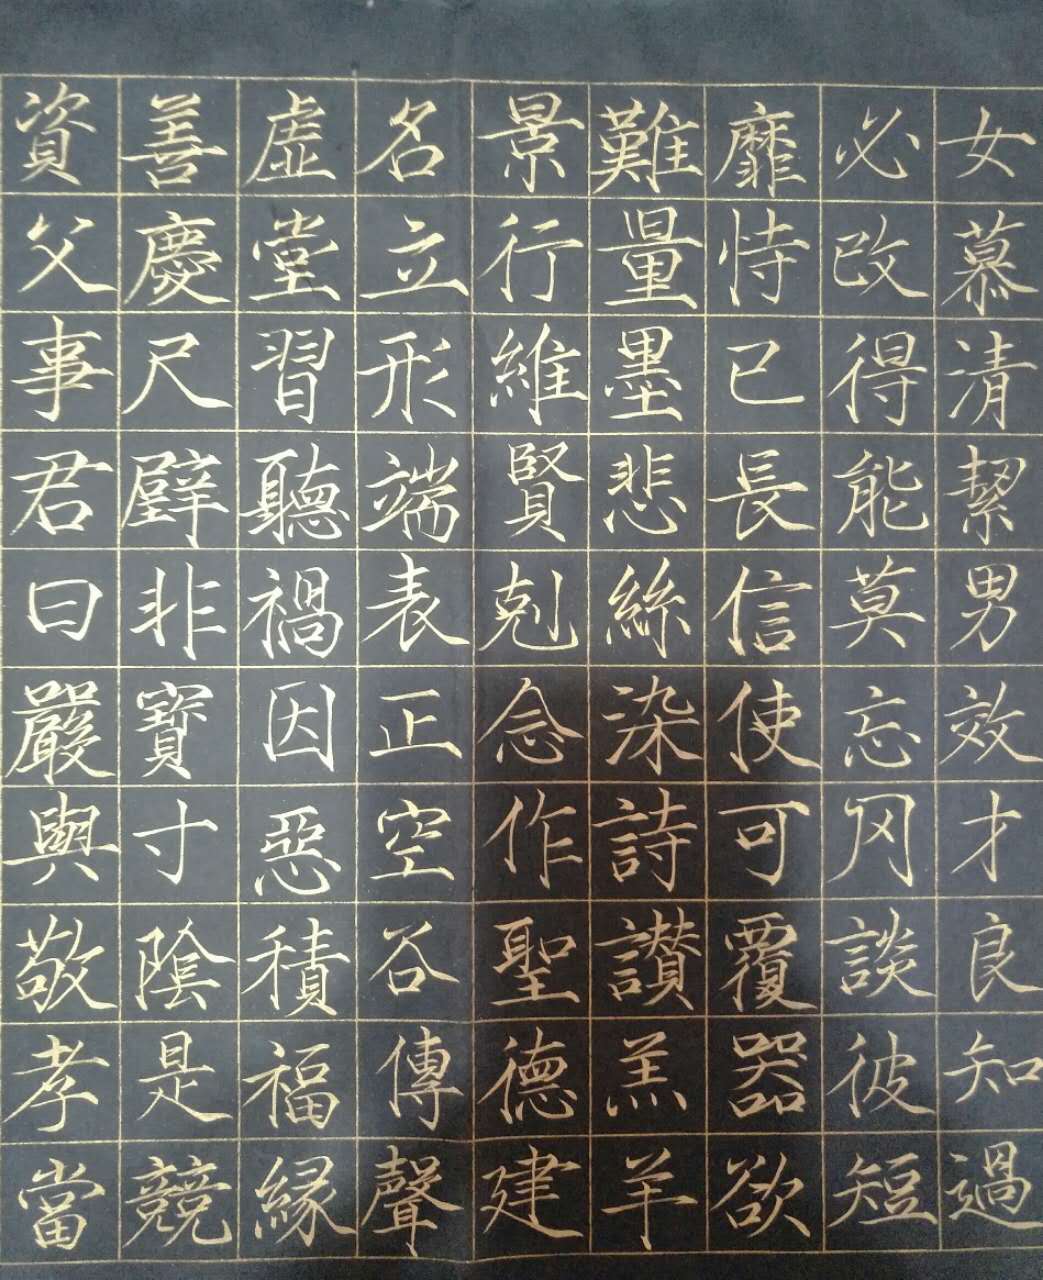 女慕清絜男效才良知過
必改得能莫忘罔談彼短
靡恃已長信使可覆器欲
難量墨悲絲染詩讃羔羊
景行維賢剋念作聖德建
名立形端表正空谷傳聲
虛堂習聽禍因惡積福緣
善慶尺璧非寶寸陰是競
資父事君曰嚴與敬孝當